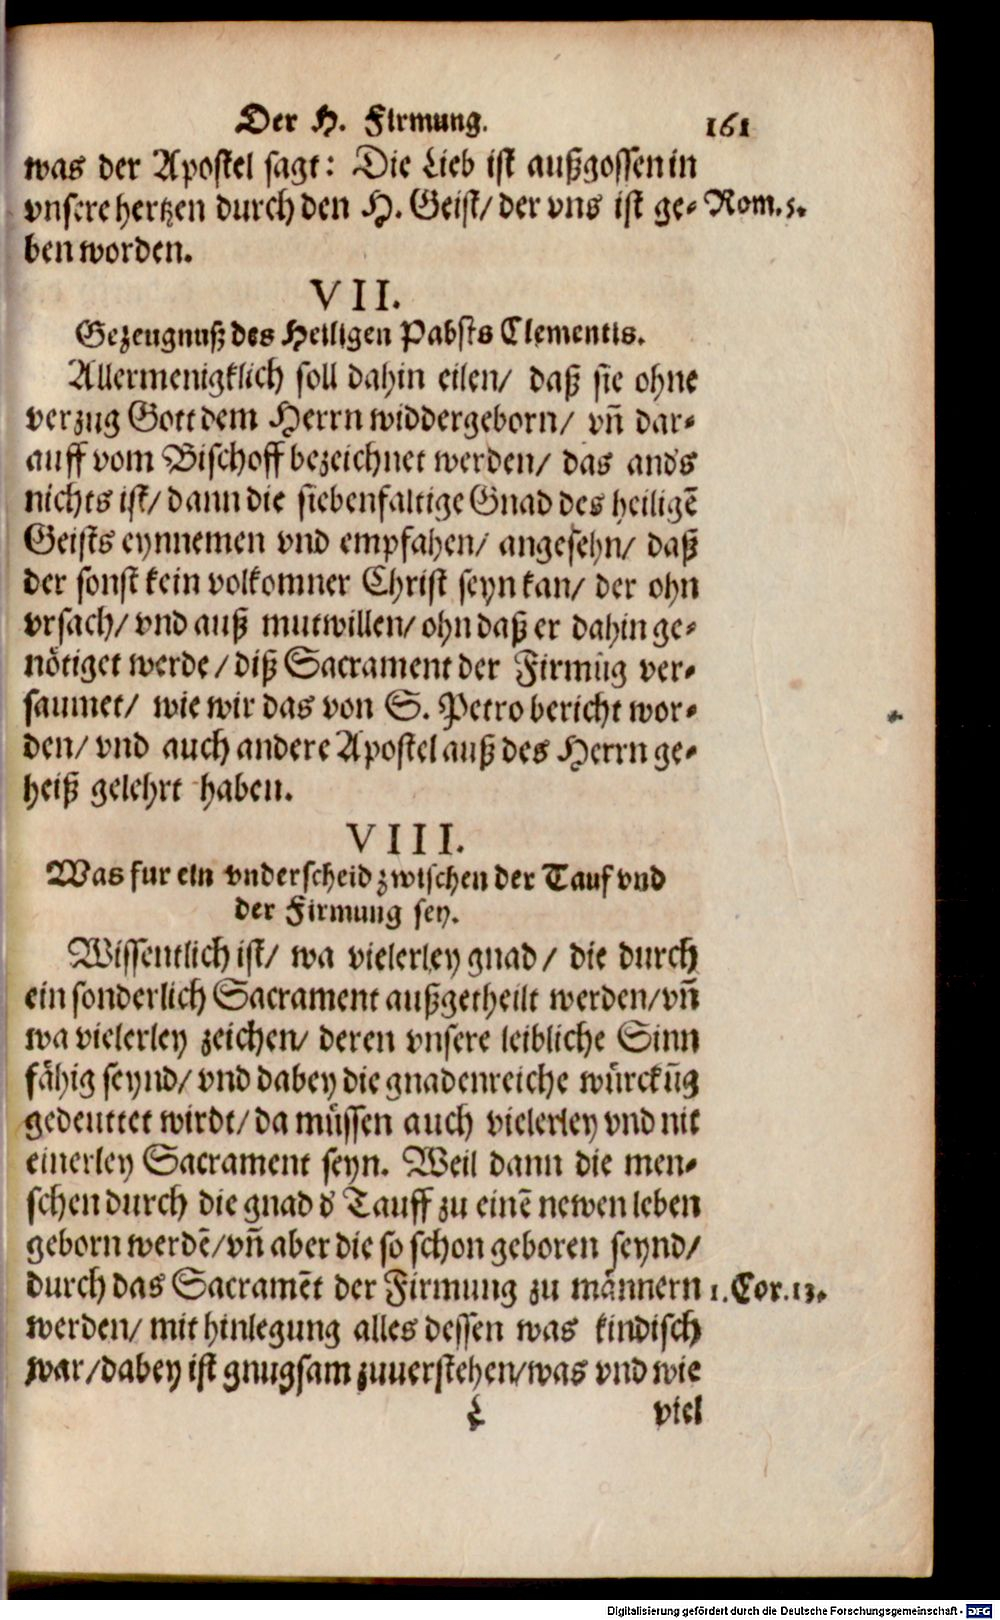 Der H. Firmung. 161
was der Apostel sagt: Die Lieb ist außgossen in
vnsere hertzen durch den H. Geist/ der vns ist ge- Rom. 5.
ben worden.
VII.
Gezeugnuß des Heiligen Pabsts Clementis.
Allermenigklich soll dahin eilen/ daß sie ohne
verzug Gott dem Herrn widdergeborn/ vn̄ dar-
auff vom Bischoff bezeichnet werden/ das and's
nichts ist/ dann die siebenfaltige Gnad des heiligē
Geists eynnemen vnd empfahen/ angesehn/ daß
der sonst kein volkomner Christ seyn kan/ der ohn
vrsach/ vnd auß mutwillen/ ohn daß er dahin ge-
nötiget werde/ diß Sacrament der Firmūg ver-
saumet/ wie wir das von S. Petro bericht wor-
den/ vnd auch andere Apostel auß des Herrn ge-
heiß gelehrt haben.
VIII.
Was fur ein vnderscheid zwischen der Tauf vnd
der Firmung sey.
Wissentlich ist/ wa vielerley gnad/ die durch
ein sonderlich Sacrament außgetheilt werden/ vn̄
wa vielerley zeichen/ deren vnsere leibliche Sinn
fähig seynd/ vnd dabey die gnadenreiche würckūg
gedeuttet wirdt/ da müssen auch vielerley vnd nit
einerley Sacrament seyn. Weil dann die men-
schen durch die gnad d' Tauff zu einē newen leben
geborn werdē/ vn̄ aber die so schon geboren seynd/
durch das Sacramēt der Firmung zu männern 1. Cor. 13.
werden/ mit hinlegung alles dessen was kindisch
war/ dabey ist gnugsam zuuerstehen/ was vnd wie
L viel
Digitalisierung gefördert durch die Deutsche Forschungsgemeinschaft - DFG